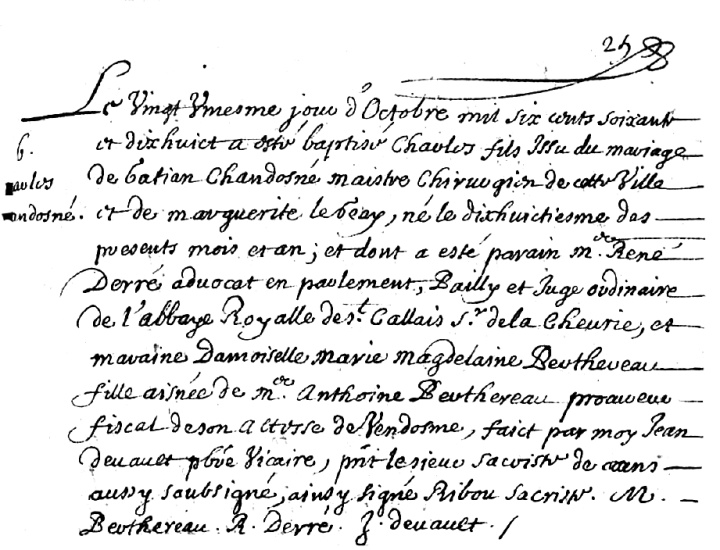 25
Le Vingt Vniesme jour d'Octobre mil six cents soixante
b. et dixhuict a esté baptisé Charles fils Issu du mariage
aules de batian Chandosné maistre Chirurgien de cette Ville
ondosné. et de marguerite le beay, né le dixhuictiesme des
presents mois et an; et dont a esté parain me. René
Derré advocat en parlement, Bailly et Juge ordinaire
de l'abbaye Royalle de st. Callais sr. de la Cheurie, et
maraine Damoiselle marie magdelaine Berthereau
fille aisnée de me. Anthoine Berthereau procureur
fiscal de son altesse de Vendosme, faict par moy Jean
devault pbre Vicaire, pnt le sieur sacriste de ceans
aussy soubsigné, ainsy signé Ribou sacriste. M.
Berthereau. R. Derré. J. devault. /